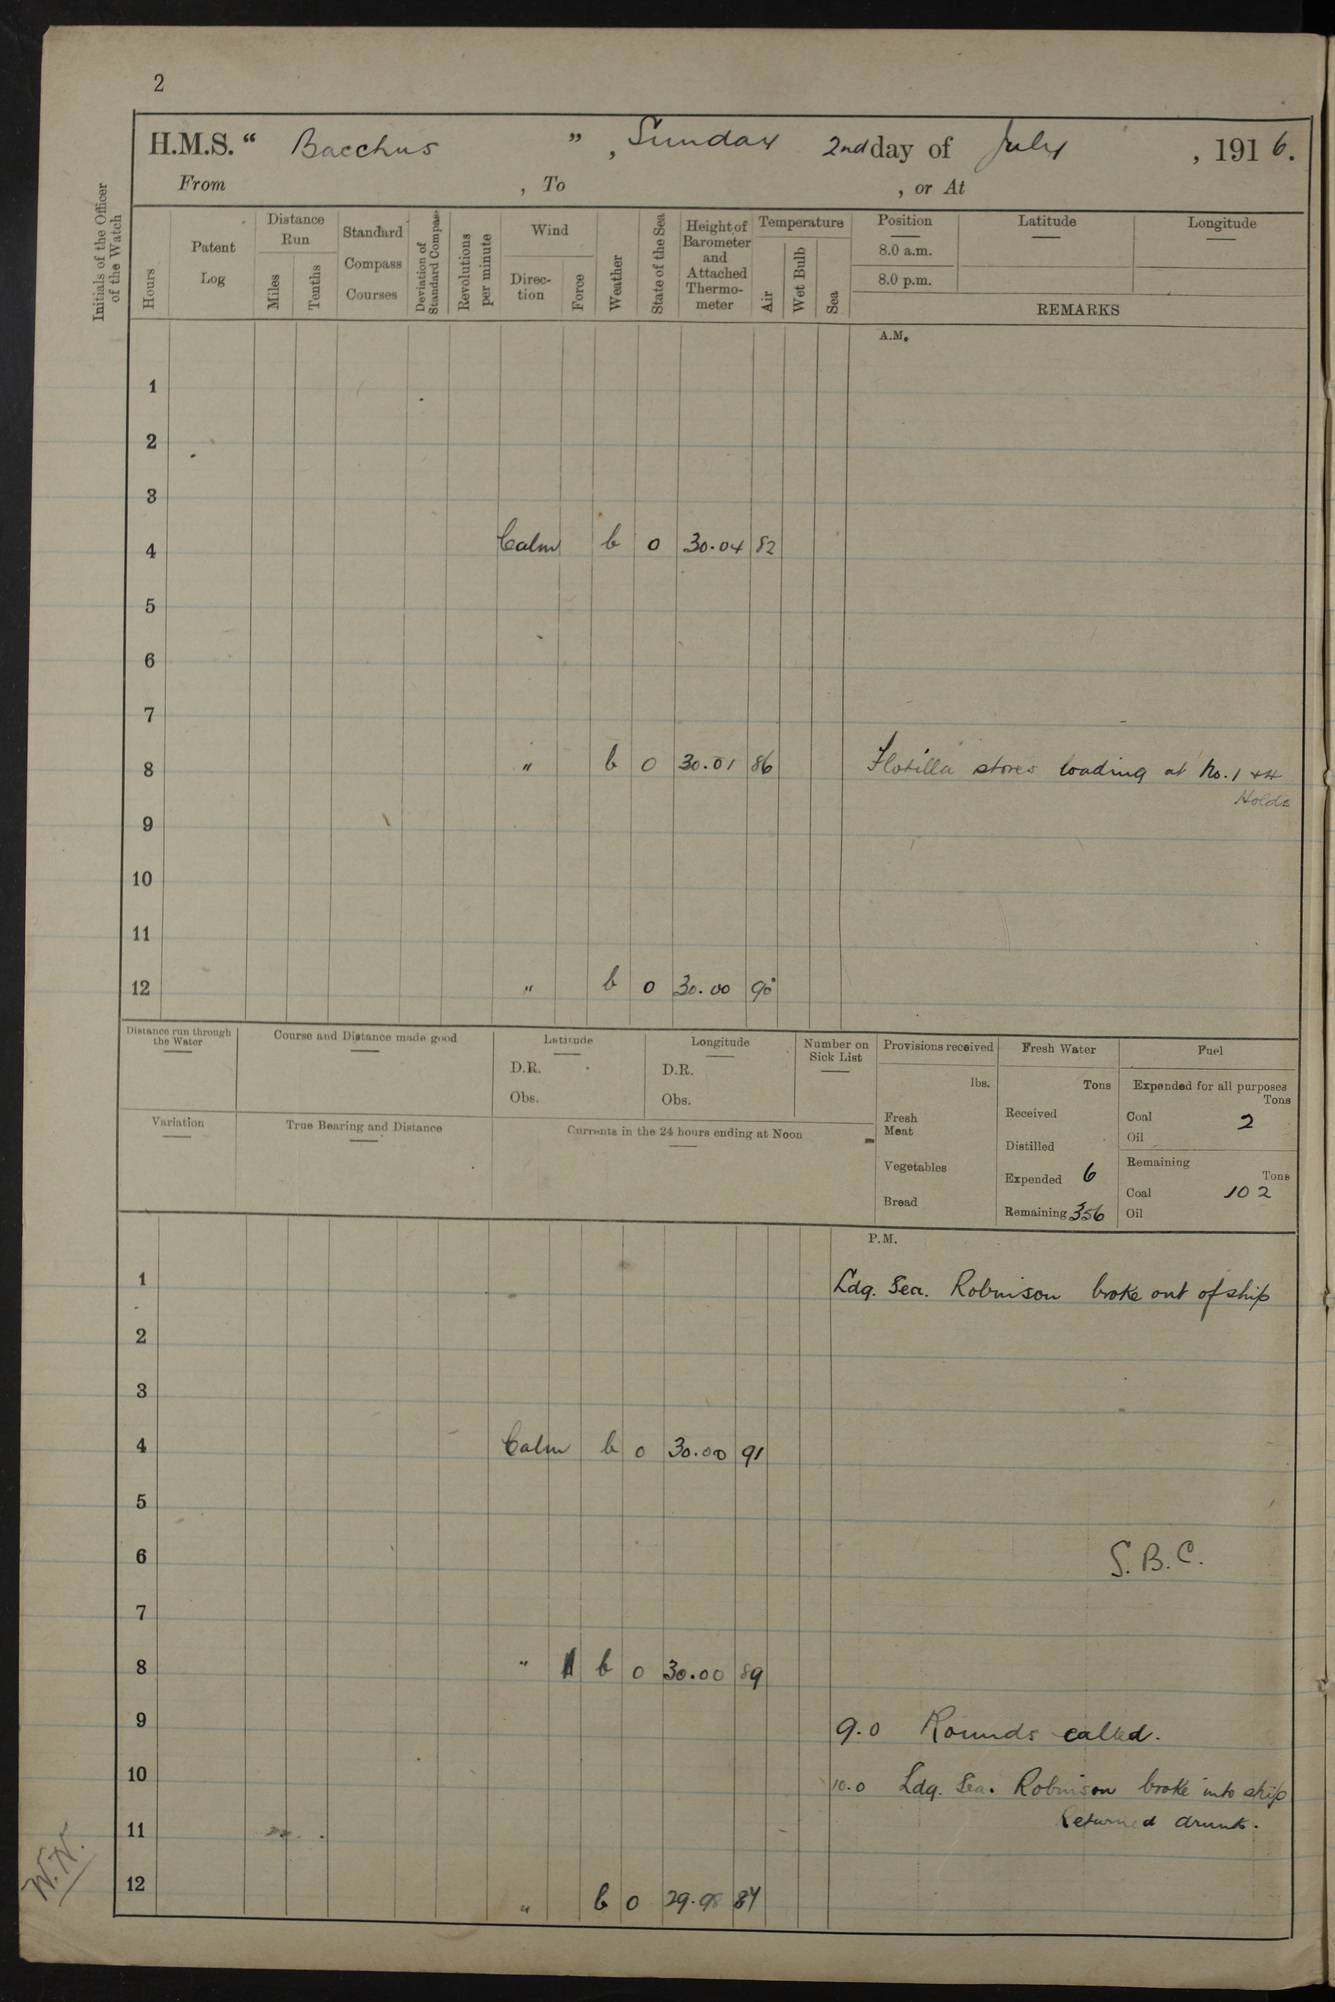 2
H.M.S. “ Bacchus ” , Sunday 2nd day of July , 1916.
From , To , or At
Initials of the Officer of the Watch
Hours
Patent Log
Distance Run
Miles
Tenths
Standard Compass Courses
Deviation of Standard Compass
Revolutions per minute
Wind
Direc-tion
Force
Weather
State of the Sea
Height of Barometer and Attached Thermo-meter
Temperature
Air
Wet Bulb
Sea
Position
8.0 a.m.
8.0 p.m.
Latitude
Longitude
REMARKS
A.M.
1
2
3
4 Calm b 0 30.04 82
5
6
7
8 " b 0 30.01 86 Flotilla stores loading at No. 1 & 4
Holds
9
10
11
12 " b 0 30.00 90
Distance run through the Water
Course and Distance made good
Latitude
D.R.
Obs.
Longitude
D.R.
Obs.
Number on Sick List
Variation
True Bearing and Distance
Currents in the 24 hours ending at Noon
Provisions received
lbs.
Fresh Meat
Vegetables
Bread
Fresh Water
Tons
Received
Distilled
Expended 6
Remaining 356
Fuel
Expended for all purposes
Tons
Coal 2
Oil
Remaining
Tons
Coal 102
Oil
P.M.
1 Ldg. Sea. Robinson broke out of ship
2
3
4 Calm b 0 30.00 91
5
6 S.B.C.
7
8 " b 0 30.00 89
9 9.0 Rounds called.
10 10.0 Ldg. Sea. Robinson broke into ship
Returned drunk.
11
12 " b 0 29.98 84
W.N.